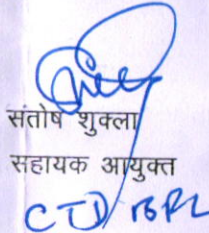 संतोष शुक्ला
सहायक आयुक्त
CTD BPL